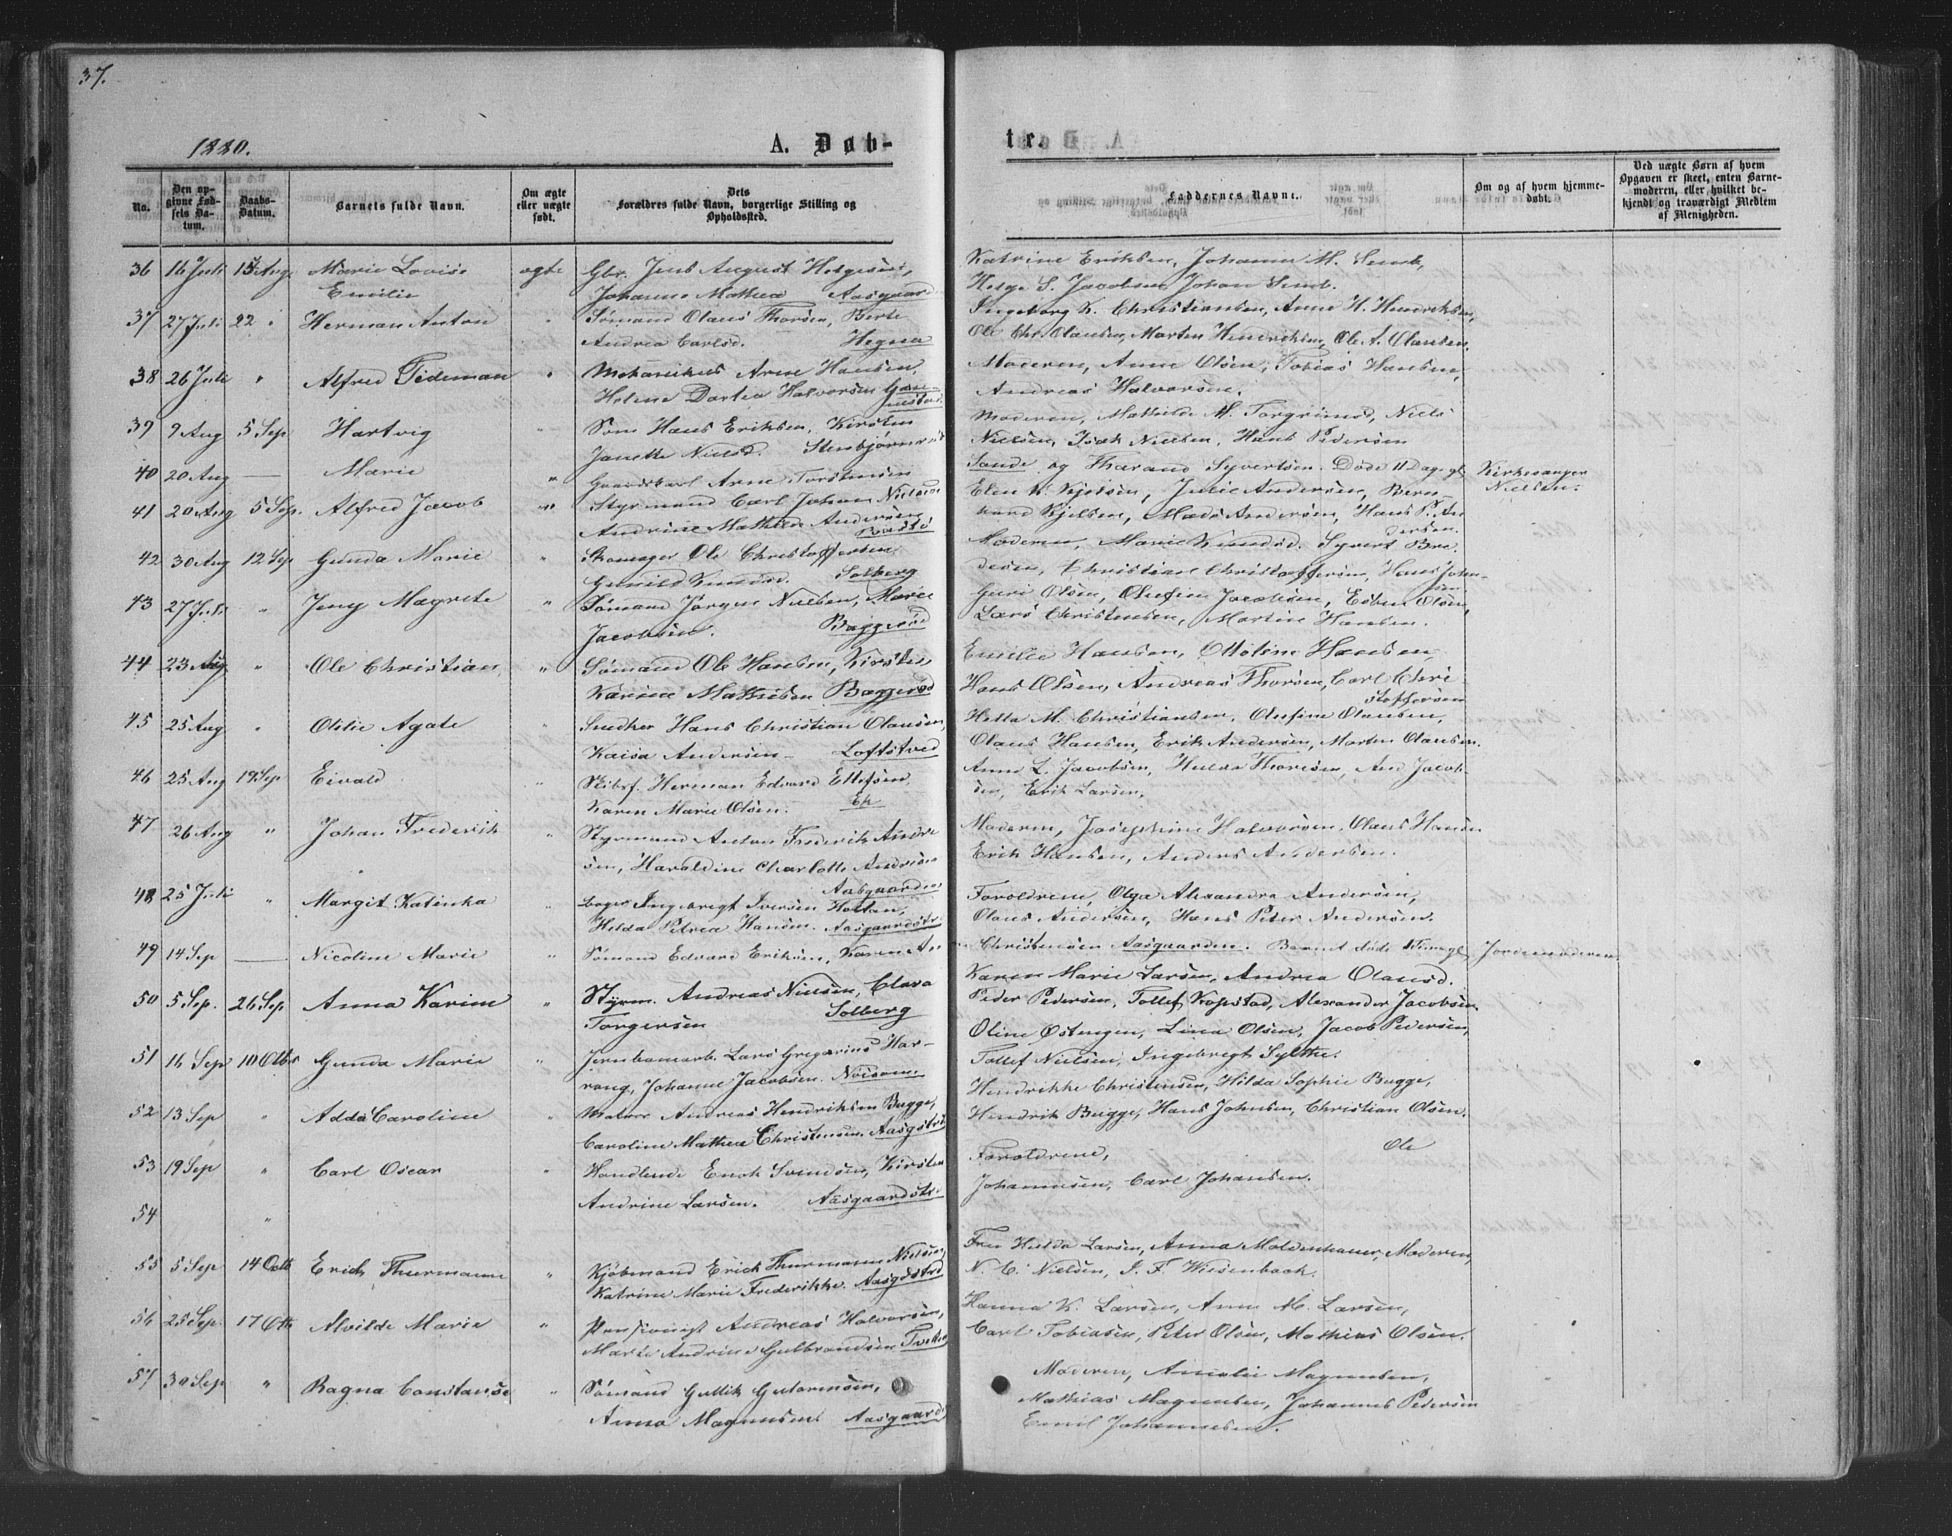 37.
1880.
A. Døb-
ter.
No.
Den op-
givne Fød-
sels Da-
tum.
Daabs-
Datum.
Barnets fulde Navn.
Om ægte
eller uægte
født.
Dets
Forældres fulde Navn, borgerlige Stilling og
Opholdssted.
Faddernes Navne.
Om og af hvem hjemme-
døbt.
Ved uægte Børn af hvem
Opgaven er skeet, enten Barne-
moderen, eller hvilket be-
kjendt og troværdigt Medlem
af Menigheden.
36 16 Juli 15 Aug Marie Lovise ægte Gbr. Jens August Helgesen, Katrine Eriksen, Johanne M. Semb,
Emilie Johanne Mathea Aasgaard Helge S. Jacobsen Johan Semb.
37 27 Juli 22 " Herman Anton " Sømand Olaus Thorsen, Berte Ingeborg K. Christiansen, Anne H. Hendriksen,
Andrea Carlsd. Hegna Ole Chr. Olausen, Marten Hendriksen, Ole A. Olausen.
38 26 Juli " Alfred Tideman " Mekanikus Arne Hansen, Moderen, Anne Olsen, Tobias Hansen,
Helene Dortea Halvorsen Andreas Halvorsen.
39 9 Aug 5 Sep Hartvig " Søm Hans Eriksen, Kirsten Moderen, Mathilde M. Torgrimsd, Niels
Janette Nielsd. Nielsen, Isak Nielsen, Hans Pedersen
40 20 Aug — Marie " Gaardskarl Arne Torstensen Sande og Tharand Syvertsen. Døde 11 Dage gl. Kirkesanger
Nielsen.
41 20 Aug 5 Sep. Alfred Jacob " Styrmand Carl Johan Nielsen Elen K. Kjelsen, Julie Andersen, Bern-
Andrine Mathilde Andersen hard Kjelsen, Mads Andersen, Hans P. An
dersen.
42 30 Aug 12 Sep Gunda Marie " Skomager Ole Christoffersen Moderen, Marie Knudsd. Syvert Bre
Gunild Knudsd. Solberg desen, Christian Christoffersen, Hans John-
sen
43 27 Juli " Jeny Magrete " Sømand Jørgen Nielsen, Marie Guri Olsen, Olufine Jacobsen, Esben Olsen,
Jacobsen. Baggerød Lars Christensen, Martine Hansen.
44 23 Aug " Ole Christian " Sømand Ole Hansen, Kirsten Emilie Hansen, Ottoline Hansen,
Karine Mathisen Baggerød Hans Olsen, Andreas Thorsen, Carl Chri
stoffersen
45 25 Aug " Otilie Agate " Snedker Hans Christian Olausen, Hetta M. Christiansen, Olufine Olausen,
Kaisa Andersen Loftstved Olaus Hansen, Erik Andersen, Morten Olausen.
46 25 Aug 19 Sep Eivald " Skibsf. Herman Edvard Ellefsen, Anne L. Jacobsen, Hulda Thoresen, And Jacob-
Karen Marie Olsen. Ek sen, Erik Larsen.
47 26 Aug " Johan Frederik " Styrmand Anton Frederik Andre Moderen, Josephine Halvorsen, Olaus Hansen
sen, Haraldine Charlotte Andresen Erik Hansen, Anders Andersen.
Aasgaarden
48 25 Juli " Margit Katinka " Bager Ingebregt Iversen Holtan, Foroldrene, Olga Alexandra Andersen,
Hilda Petrea Hansen. Aasgaardstr Olaus Andersen, Hans Peter Andersen.
49 14 Sep — Nicoline Marie " Sømand Edvard Eriksen, Karen An Christensen Aasgaarden. Barnet døde Jordemoderen.
Karen Marie Larsen, Andrea Olausd.
50 5 Sep. 26 Sep Anna Karine " Styrm. Andreas Nielsen, Clara Peder Pedersen, Tollef Kopstad, Alexander Jacobsen
Torgersen Solberg Oline Østengen, Lina Olsen, Jacob Pedersen,
51 16 Sep 10 Otbr Gunda Marie " Jernbanearb. Lars Gregorius Har- Tollef Nielsen, Ingebregt Sylthe.
rang, Johanne Jacobsen. Hendrikke Christensen, Hilda Sophie Bugge,
52 13 Sep " Adda Caroline " Matros Andreas Hendriksen Bugge, Hendrik Bugge, Hans Johnsen, Christian Olsen.
Caroline Mathea Christensen. Aasgstr
53 19 Sep " Carl Oscar " Handlende Enok Svendsen, Kirsten Foroldrene, Ole
Andrine Larsen. Aasgaardstr. Johannesen, Carl Johansen.
54 "
55 5 Sep 14 Octb Erich Thurmann " Kjøbmand Erich Thurmann Nielsen, Fru Hulda Larsen, Anna Moldenhauer, Moderen,
Katrine Marie Frederikke. Aasgdstrd N. C. Nielsen, J. F. Wiesenback.
56 25 Sep. 17 Otb Alvilde Marie " Pensionist Andreas Halvorsen, Hanna K. Larsen, Anne M. Larsen,
Marte Andrine Gulbrandsen Tvetten Carl Tobiasen, Peter Olsen, Mathias Olsen.
57 30 Sep " Ragna Constanse " Sømand Gullik Guttormsen, Moderen, Amalie Magnussen,
Anna Magnusen. Aasgaard Mathias Magnussen, Johannes Pedersen
Emil Johannesen.